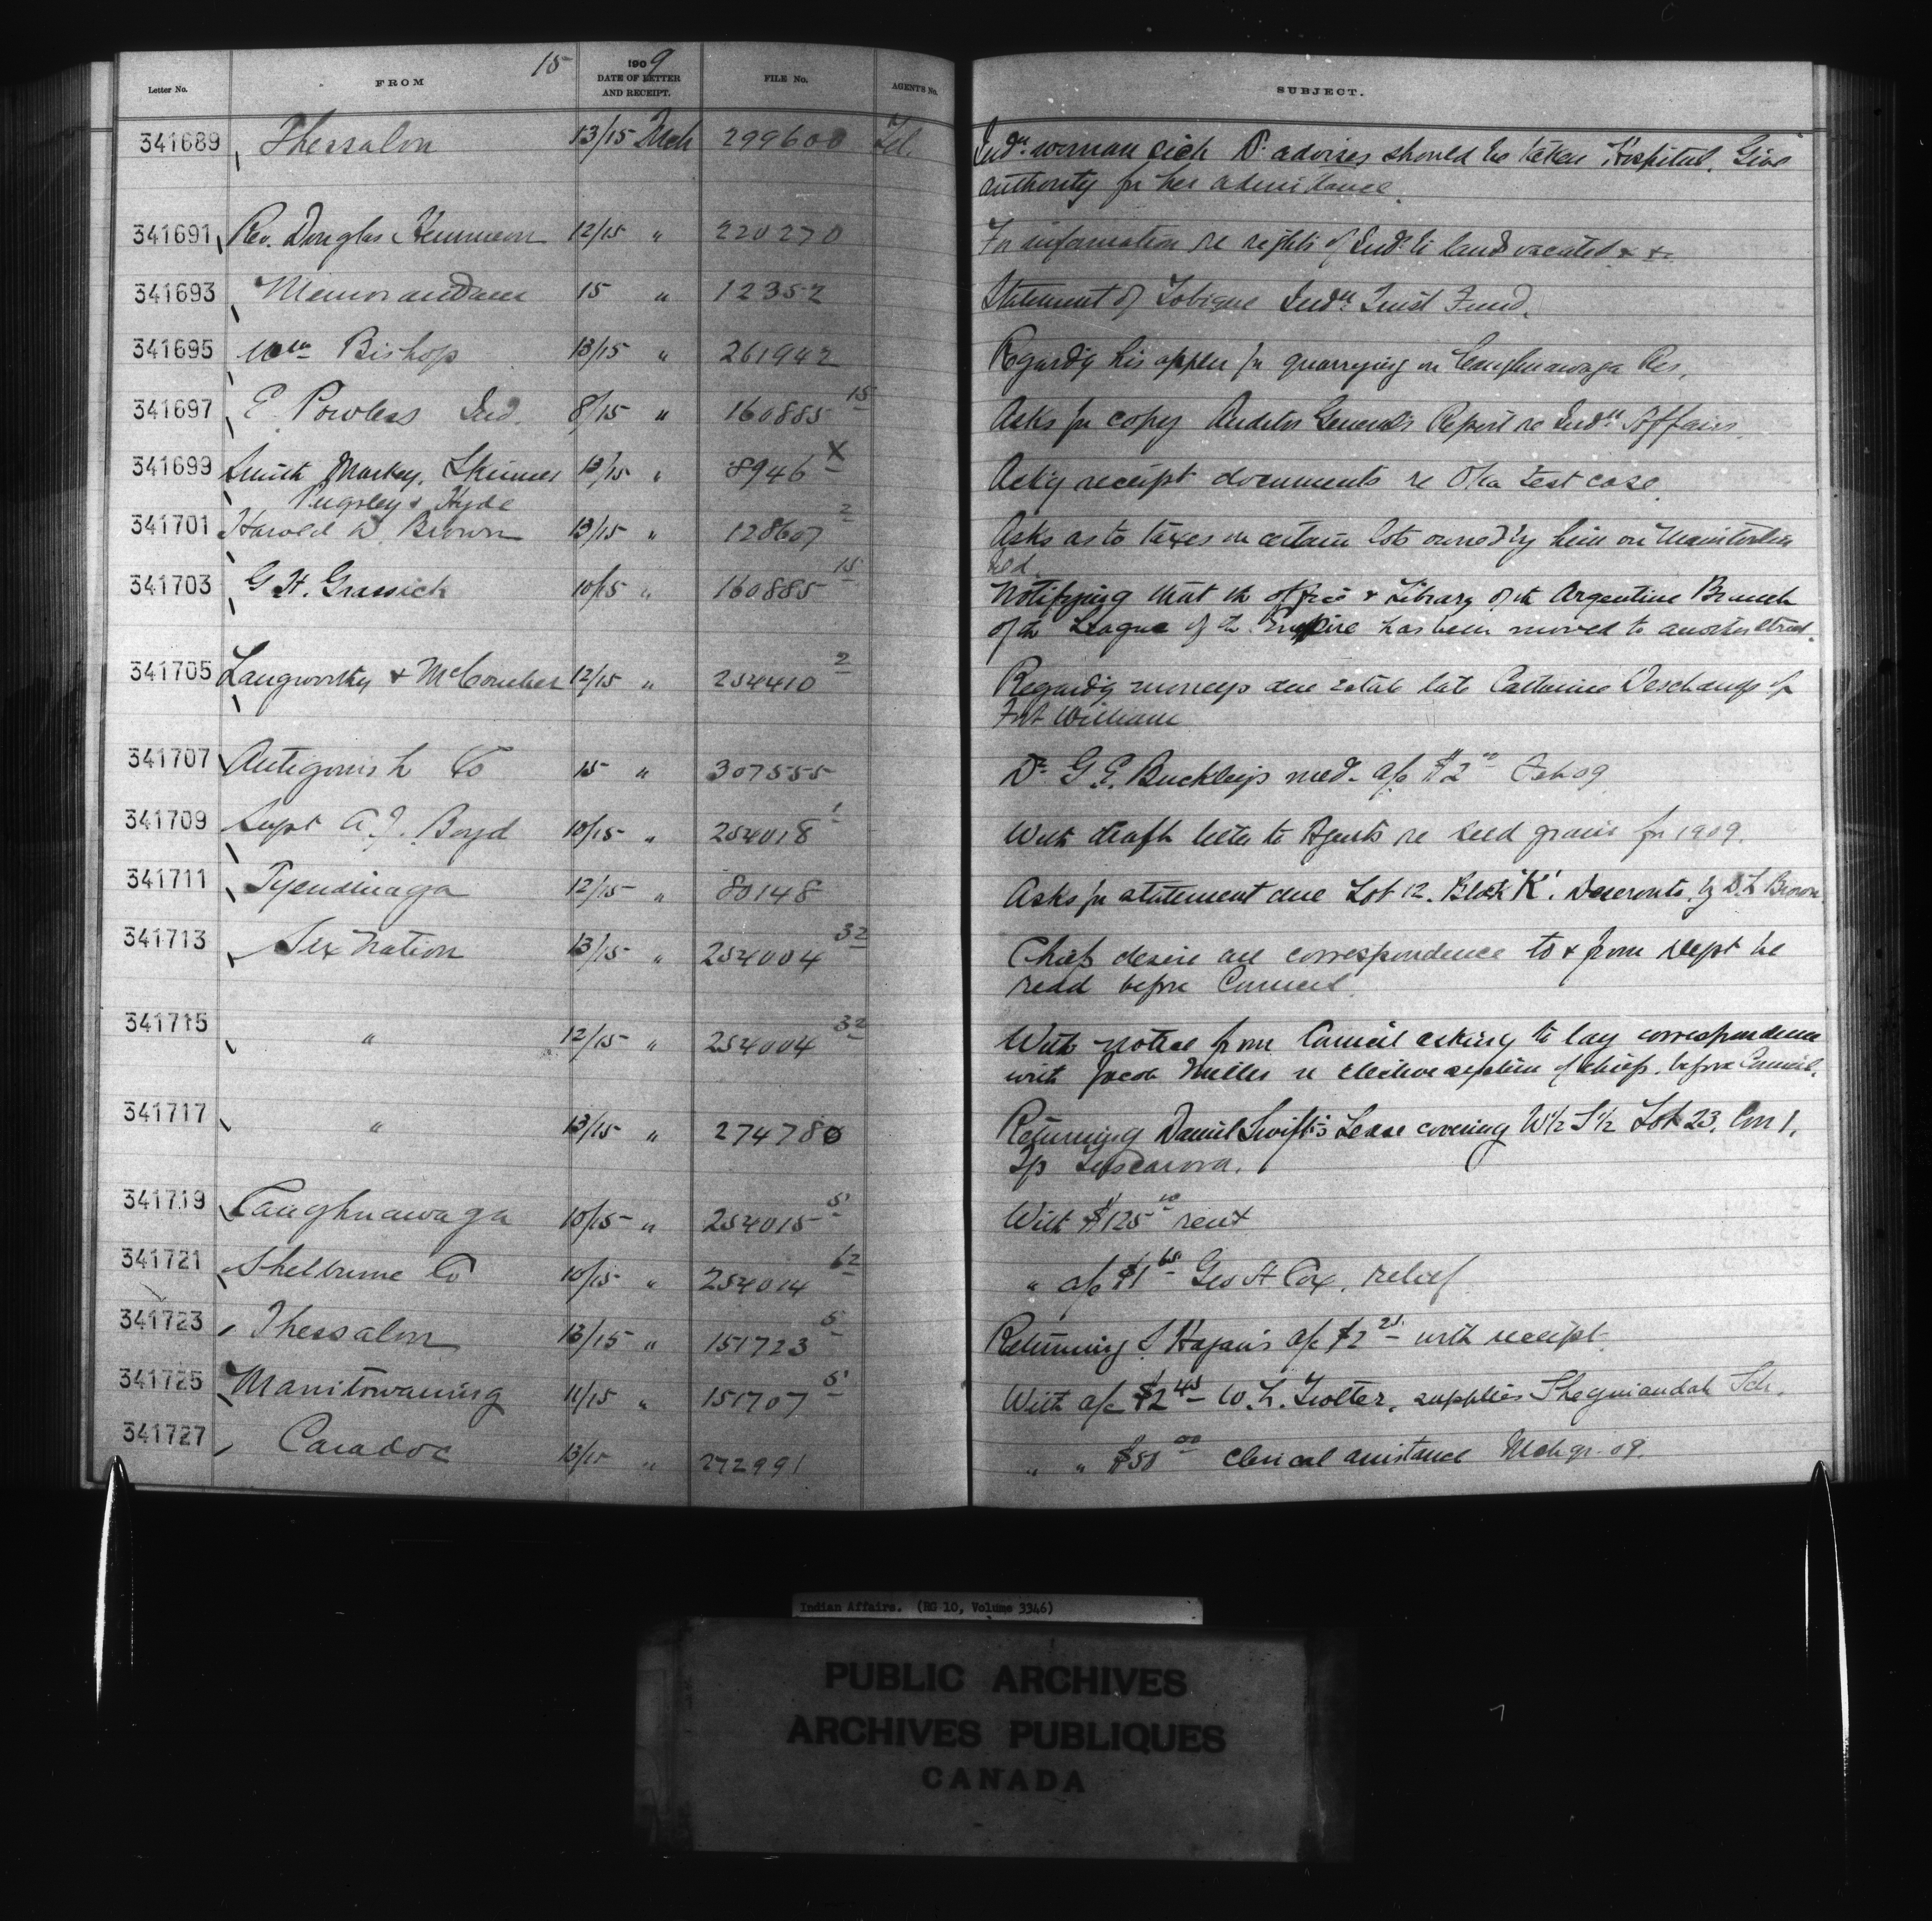 15 1909
Letter No. FROM DATE OF LETTER AND RECEIPT. FILE No. AGENT'S No. SUBJECT.
341689 Thessalon 13/15 Mch 299600 Tel. Indn woman sick Dr advises should be taken Hospital. Give
authority for her admittance.
341691 Rev. Douglas 12/15 " 220270 For information re rights of Inds to land vacated &c
341693 Memorandum 15 " 12352 Statement of Tobique Indn Trust Fund.
341695 Wm Bishop 13/15 " 261942 Regardg his appln for quarrying on Caughnawaga Res.
341697 E. Powless Ind. 8/15 " 160885 15 Asks for copy Auditor General's Report re Indn Affairs.
341699 Smith Markey, Skinner 13/15 " 8946 X Ackg receipt documents re Oka test case.
Pugsley & Hyde
341701 Harold W. Brown 13/15 " 128607 2 Asks as to taxes on certain lots owned by him on Manitoulin
Ild.
341703 G. H. Grassick 10/15 " 160885 15 Notifying that the office & Library of the Argentine Branch
of the League of the Empire has been moved to another street.
341705 Langworthy & McComber 12/15 " 254410 2 Regardg moneys due estate late Catherine Deschamps of
Fort William
341707 Antigonish Co 15 " 307555 Dr. G. E. Buckley's med. a/c $2 00 Feb 09
341709 Supt A. J. Boyd 10/15 " 254018 1 With draft letter to Agents re seed grain for 1909.
341711 Tyendinaga 12/15 " 80148 Asks for statement due Lot 12. Block 'K'. Deseronto. by D. L. Brown.
341713 Six Nation 13/15 " 254004 32 Chiefs desire all correspondence to & from Dept be
read before Council.
341715 " 12/15 " 254004 32 With notice from Council asking to lay correspondence
with Jacob Miller re elective system of chiefs. before Council.
341717 " 13/15 " 274780 Returning Daniel Swift's Lease covering W1/2 S1/2 Lot 23. Con 1.
Tp Tuscarora.
341719 Caughnawaga 10/15 " 254015 5 With $125 00 rent
341721 Shelburne Co 10/15 " 254014 62 " a/c $1 65 Geo H Cox, relief
341723 Thessalon 13/15 " 151723 5 Returning S. Hagan's a/c $2 25 with receipt.
341725 Manitowaning 11/15 " 151707 5 With a/c $2 45 W. L. Trotter, supplies Sheguiandah Sch.
341727 Caradoc 13/15 " 272991 " " $50 00 clerical assistance Mch qr. 09.
Indian Affairs. (RG 10, Volume 3346)
PUBLIC ARCHIVES
ARCHIVES PUBLIQUES
CANADA